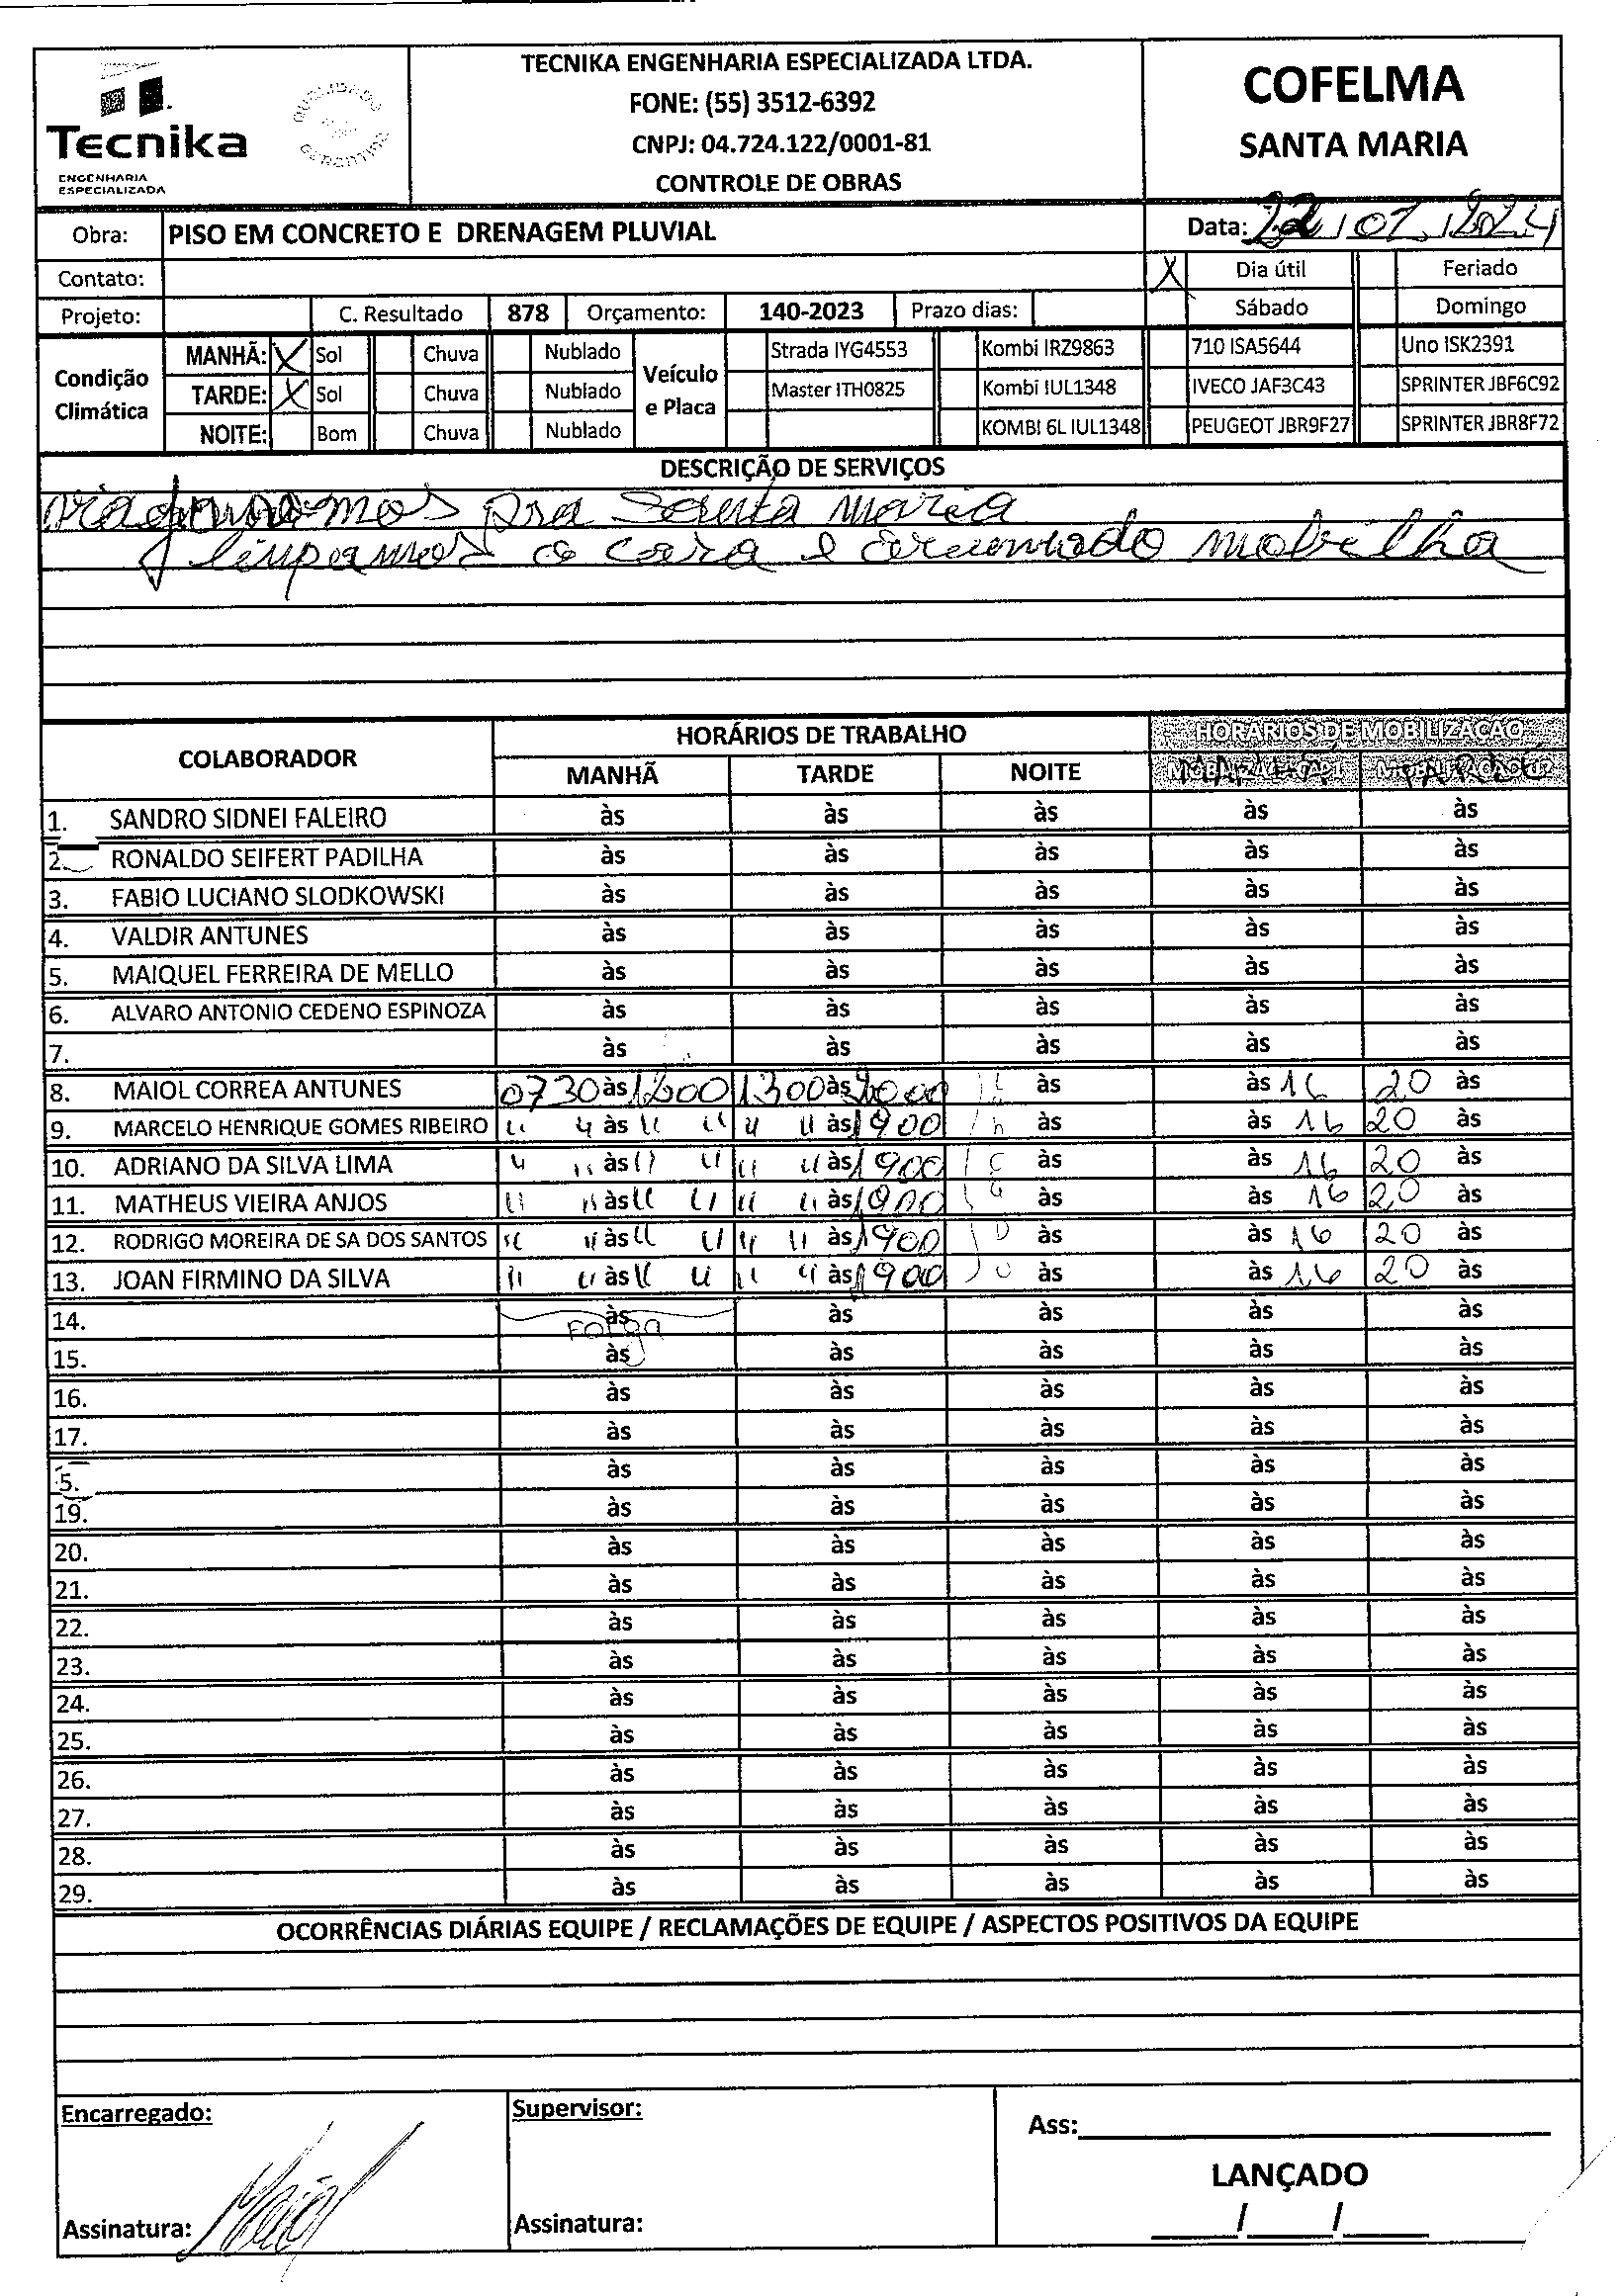 TECNIKA ENGENHARIA ESPECIALIZADA LTDA.
FONE: (55) 3512-6392
CNPJ: 04.724.122/0001-81
CONTROLE DE OBRAS
Tecnika
ENGENHARIA
ESPECIALIZADA
COFELMA
SANTA MARIA
Obra: PISO EM CONCRETO E DRENAGEM PLUVIAL Data: 22/01/2024
Contato: X Dia útil Feriado
Projeto: C. Resultado 878 Orçamento: 140-2023 Prazo dias: Sábado Domingo
Condição Climática
MANHÃ: X Sol Chuva Nublado
TARDE: X Sol Chuva Nublado
NOITE: Bom Chuva Nublado
Veículo e Placa
Strada IYG4553 Kombi IRZ9863 710 ISA5644 Uno ISK2391
Master ITH0825 Kombi IUL1348 IVECO JAF3C43 SPRINTER JBF6C92
KOMBI 6L IUL1348 PEUGEOT JBR9F27 SPRINTER JBR8F72
DESCRIÇÃO DE SERVIÇOS
pra Santa Maria
limpamos a casa e mobilha
COLABORADOR HORÁRIOS DE TRABALHO HORÁRIOS DE MOBILIZAÇÃO
MANHÃ TARDE NOITE
1. SANDRO SIDNEI FALEIRO às às às às às
2. RONALDO SEIFERT PADILHA às às às às às
3. FABIO LUCIANO SLODKOWSKI às às às às às
4. VALDIR ANTUNES às às às às às
5. MAIQUEL FERREIRA DE MELLO às às às às às
6. ALVARO ANTONIO CEDENO ESPINOZA às às às às às
7. às às às às às
8. MAIOL CORREA ANTUNES 0730 às 1200 1300 às às às 16 20 às
9. MARCELO HENRIQUE GOMES RIBEIRO " " às " " " " às 1900 às às 16 20 às
10. ADRIANO DA SILVA LIMA " " às " " " " às 1900 às às 16 20 às
11. MATHEUS VIEIRA ANJOS " " às " " " " às 1900 às às 16 20 às
12. RODRIGO MOREIRA DE SA DOS SANTOS " " às " " " " às 1900 às às 16 20 às
13. JOAN FIRMINO DA SILVA " " às " " " " às 1900 às às 16 20 às
14. às às às às às
Folga
15. às às às às às
16. às às às às às
17. às às às às às
5. às às às às às
19. às às às às às
20. às às às às às
21. às às às às às
22. às às às às às
23. às às às às às
24. às às às às às
25. às às às às às
26. às às às às às
27. às às às às às
28. às às às às às
29. às às às às às
OCORRÊNCIAS DIÁRIAS EQUIPE / RECLAMAÇÕES DE EQUIPE / ASPECTOS POSITIVOS DA EQUIPE
Encarregado: Supervisor: Ass:
LANÇADO
Assinatura: Maiol Assinatura: / /